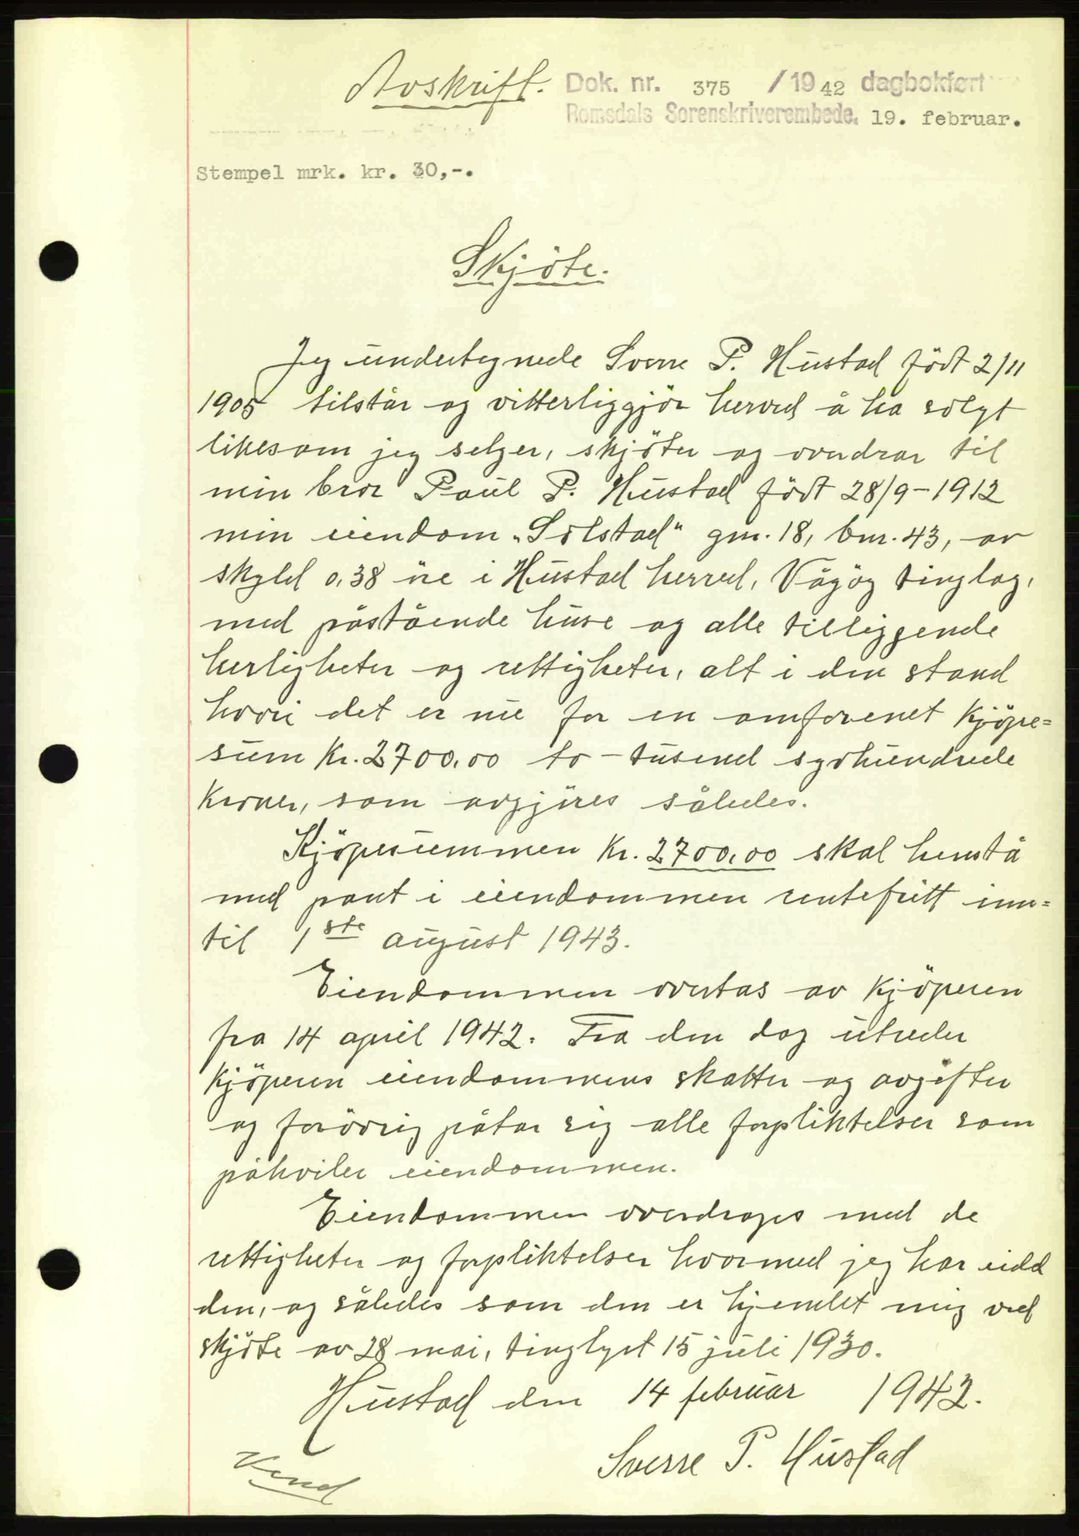 Avskrift. Dok. nr. 375 /1942 dagbokført
Romsdals Sorenskriverembede. 19. februar.
Stempel mrk. kr. 30,-.
Skjöte.
Jeg undertegnede Sverre P. Hustad födt 2/11
1905 tilstår og vitterliggjör herved å ha solgt
likesom jeg selger, skjöter og overdrar til
min bror Paul P. Hustad födt 28/9-1912
min eiendom "Solstad" gnr. 18, bnr. 43, av
skyld 0,38 öre i Hustad herred, Vågöy tinglag,
med påstående huse og alle tilliggende
herligheter og rettigheter, alt i den stand
hvori det er nu for en omforenet kjöpe=
sum kr. 2700,00 to-tusend syvhundrede
kroner, som avgjöres således.
Kjöpesummen kr. 2700,00 skal henstå
med pant i eiendommen rentefritt inn=
til 1ste august 1943.
Eiendommen overtas av kjöperen
fra 14 april 1942. Fra den dag utreder
kjöperen eiendommens skatter og avgifter
og forövrig påtar sig alle forpliktelser som
påhviler eiendommen.
Eiendommen overdrages med de
rettigheter og forpliktelser hvormed jeg har eidd
den, og således som den er hjemlet mig ved
skjöte av 28 mai, tinglyst 15 juli 1930.
Hustad den 14 februar 1942.
Sverre P. Hustad
Vend